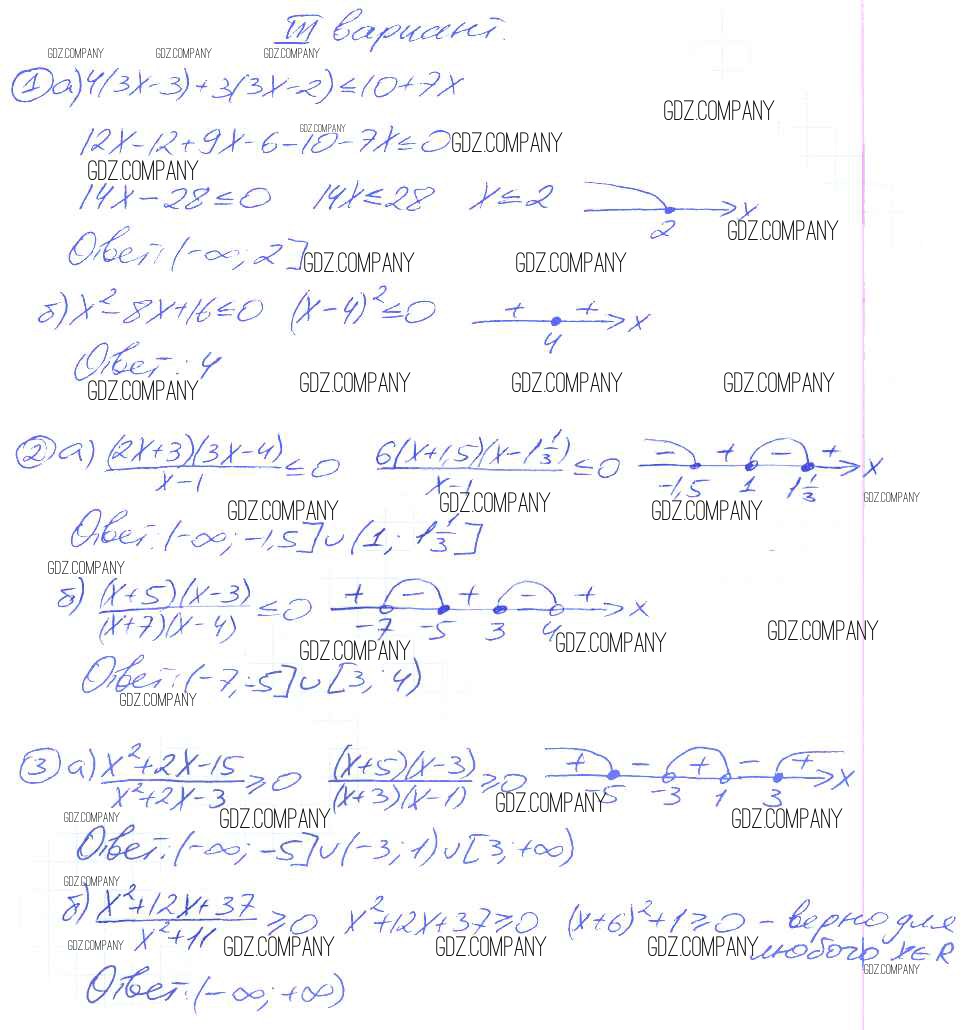 III вариант.
GDZ.COMPANY GDZ.COMPANY GDZ.COMPANY
① а) 4(3x-3)+3(3x-2)≤10+7x
GDZ.COMPANY
GDZ.COMPANY
12x-12+9x-6-10-7x≤0 GDZ.COMPANY
GDZ.COMPANY
14x-28≤0 14x≤28 x≤2 2 x
GDZ.COMPANY
Ответ: (-∞; 2] GDZ.COMPANY GDZ.COMPANY
б) x²-8x+16≤0 (x-4)²≤0 + + 4 x
Ответ: 4
GDZ.COMPANY GDZ.COMPANY GDZ.COMPANY GDZ.COMPANY
② а) (2x+3)(3x-4)/(x-1) ≤0 6(x+1,5)(x-1 1/3)/(x-1) ≤0 - + - + x
-1,5 1 1 1/3
GDZ.COMPANY GDZ.COMPANY GDZ.COMPANY GDZ.COMPANY
Ответ: (-∞; -1,5]∪(1; 1 1/3]
GDZ.COMPANY
б) (x+5)(x-3)/((x+7)(x-4)) ≤0 + - + - + x
-7 -5 3 4
GDZ.COMPANY GDZ.COMPANY GDZ.COMPANY
Ответ: (-7; -5]∪[3; 4)
GDZ.COMPANY
③ а) (x²+2x-15)/(x²+2x-3) ≥0 (x+5)(x-3)/((x+3)(x-1)) ≥0 + - + - + x
-5 -3 1 3
GDZ.COMPANY
GDZ.COMPANY GDZ.COMPANY GDZ.COMPANY
Ответ: (-∞; -5]∪(-3; 1)∪[3; +∞)
GDZ.COMPANY
б) (x²+12x+37)/(x²+11) ≥0 x²+12x+37≥0 (x+6)²+1≥0 - верно для
любого x∈R
GDZ.COMPANY GDZ.COMPANY GDZ.COMPANY GDZ.COMPANY
GDZ.COMPANY
Ответ: (-∞; +∞)